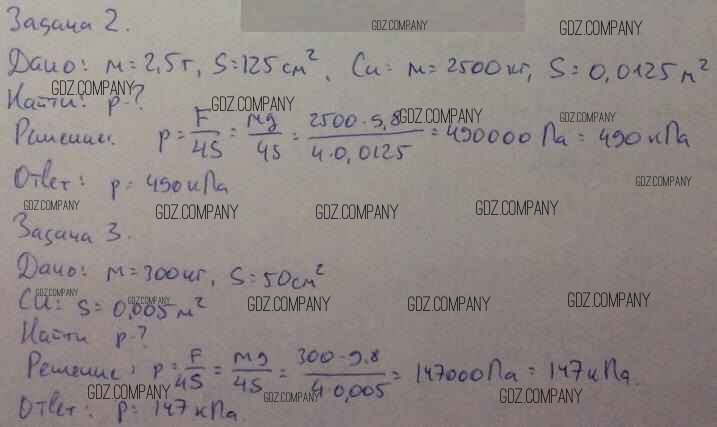 Задача 2.
GDZ.COMPANY GDZ.COMPANY
Дано: m = 2,5т, S = 125 см², Си: m = 2500 кг, S = 0,0125 м²
GDZ.COMPANY
Найти: p-?
GDZ.COMPANY GDZ.COMPANY GDZ.COMPANY
Решение: p = F/4S = mg/4S = 2500·9,8/4·0,0125 = 490000 Па = 490 кПа
Ответ: p = 490 кПа
GDZ.COMPANY
GDZ.COMPANY GDZ.COMPANY GDZ.COMPANY GDZ.COMPANY
Задача 3.
Дано: m = 300 кг, S = 50 см²
GDZ.COMPANY GDZ.COMPANY GDZ.COMPANY GDZ.COMPANY GDZ.COMPANY
Си: S = 0,005 м²
Найти p-?
Решение: p = F/4S = mg/4S = 300·9,8/4·0,005 = 147000 Па = 147 кПа
GDZ.COMPANY GDZ.COMPANY GDZ.COMPANY
Ответ: p = 147 кПа.